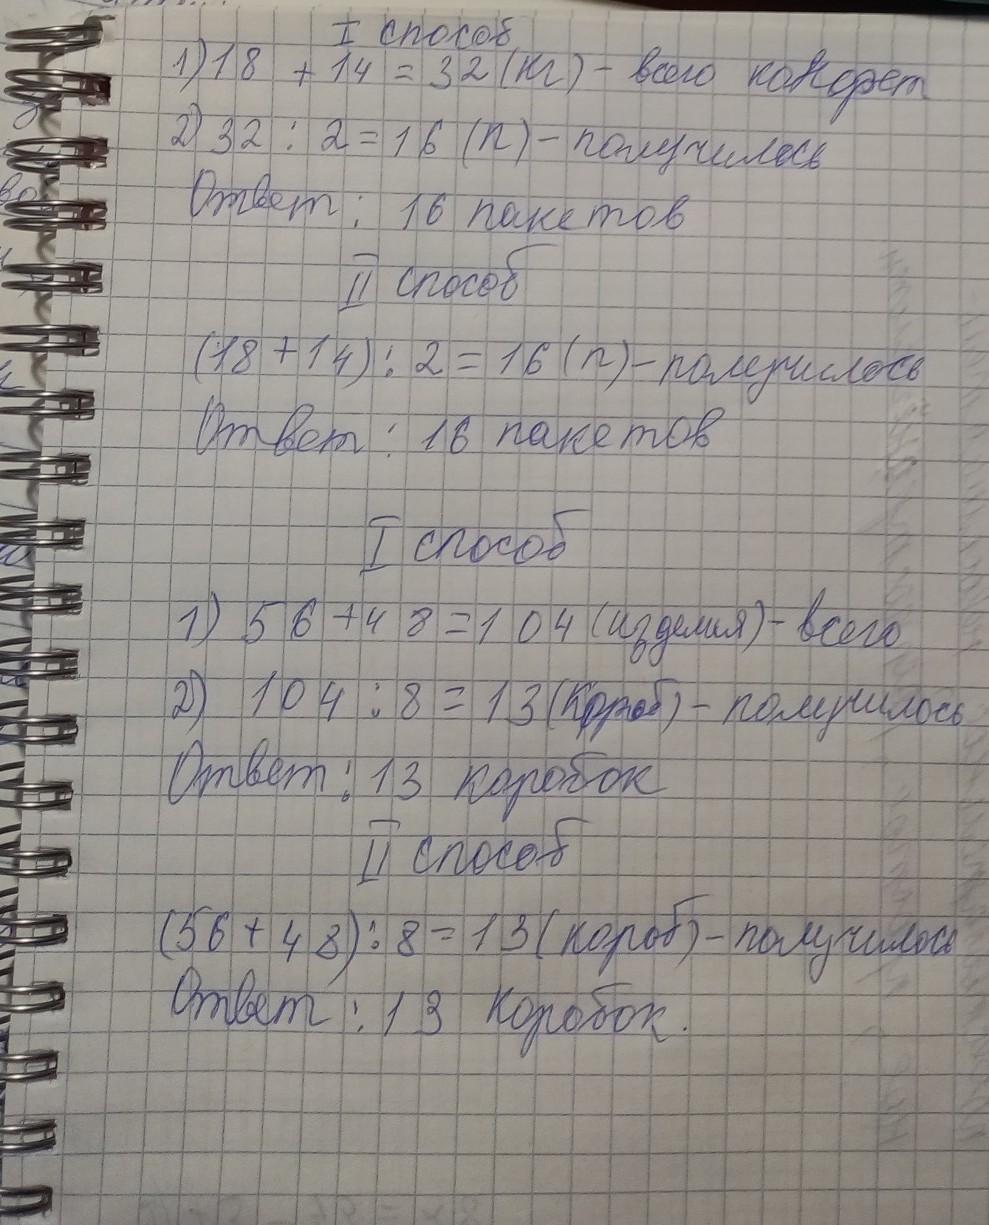 I способ
1) 18 + 14 = 32 (кг) - всего конфет
2) 32 : 2 = 16 (п) - получилось
Ответ : 16 пакетов
II способ
(18 + 14) : 2 = 16 (п) - получилось
Ответ : 16 пакетов
I способ
1) 56 + 48 = 104 (изделия) - всего
2) 104 : 8 = 13 (короб) - получилось
Ответ : 13 коробок
II способ
(56 + 48) : 8 = 13 (короб) - получилось
Ответ : 13 коробок.